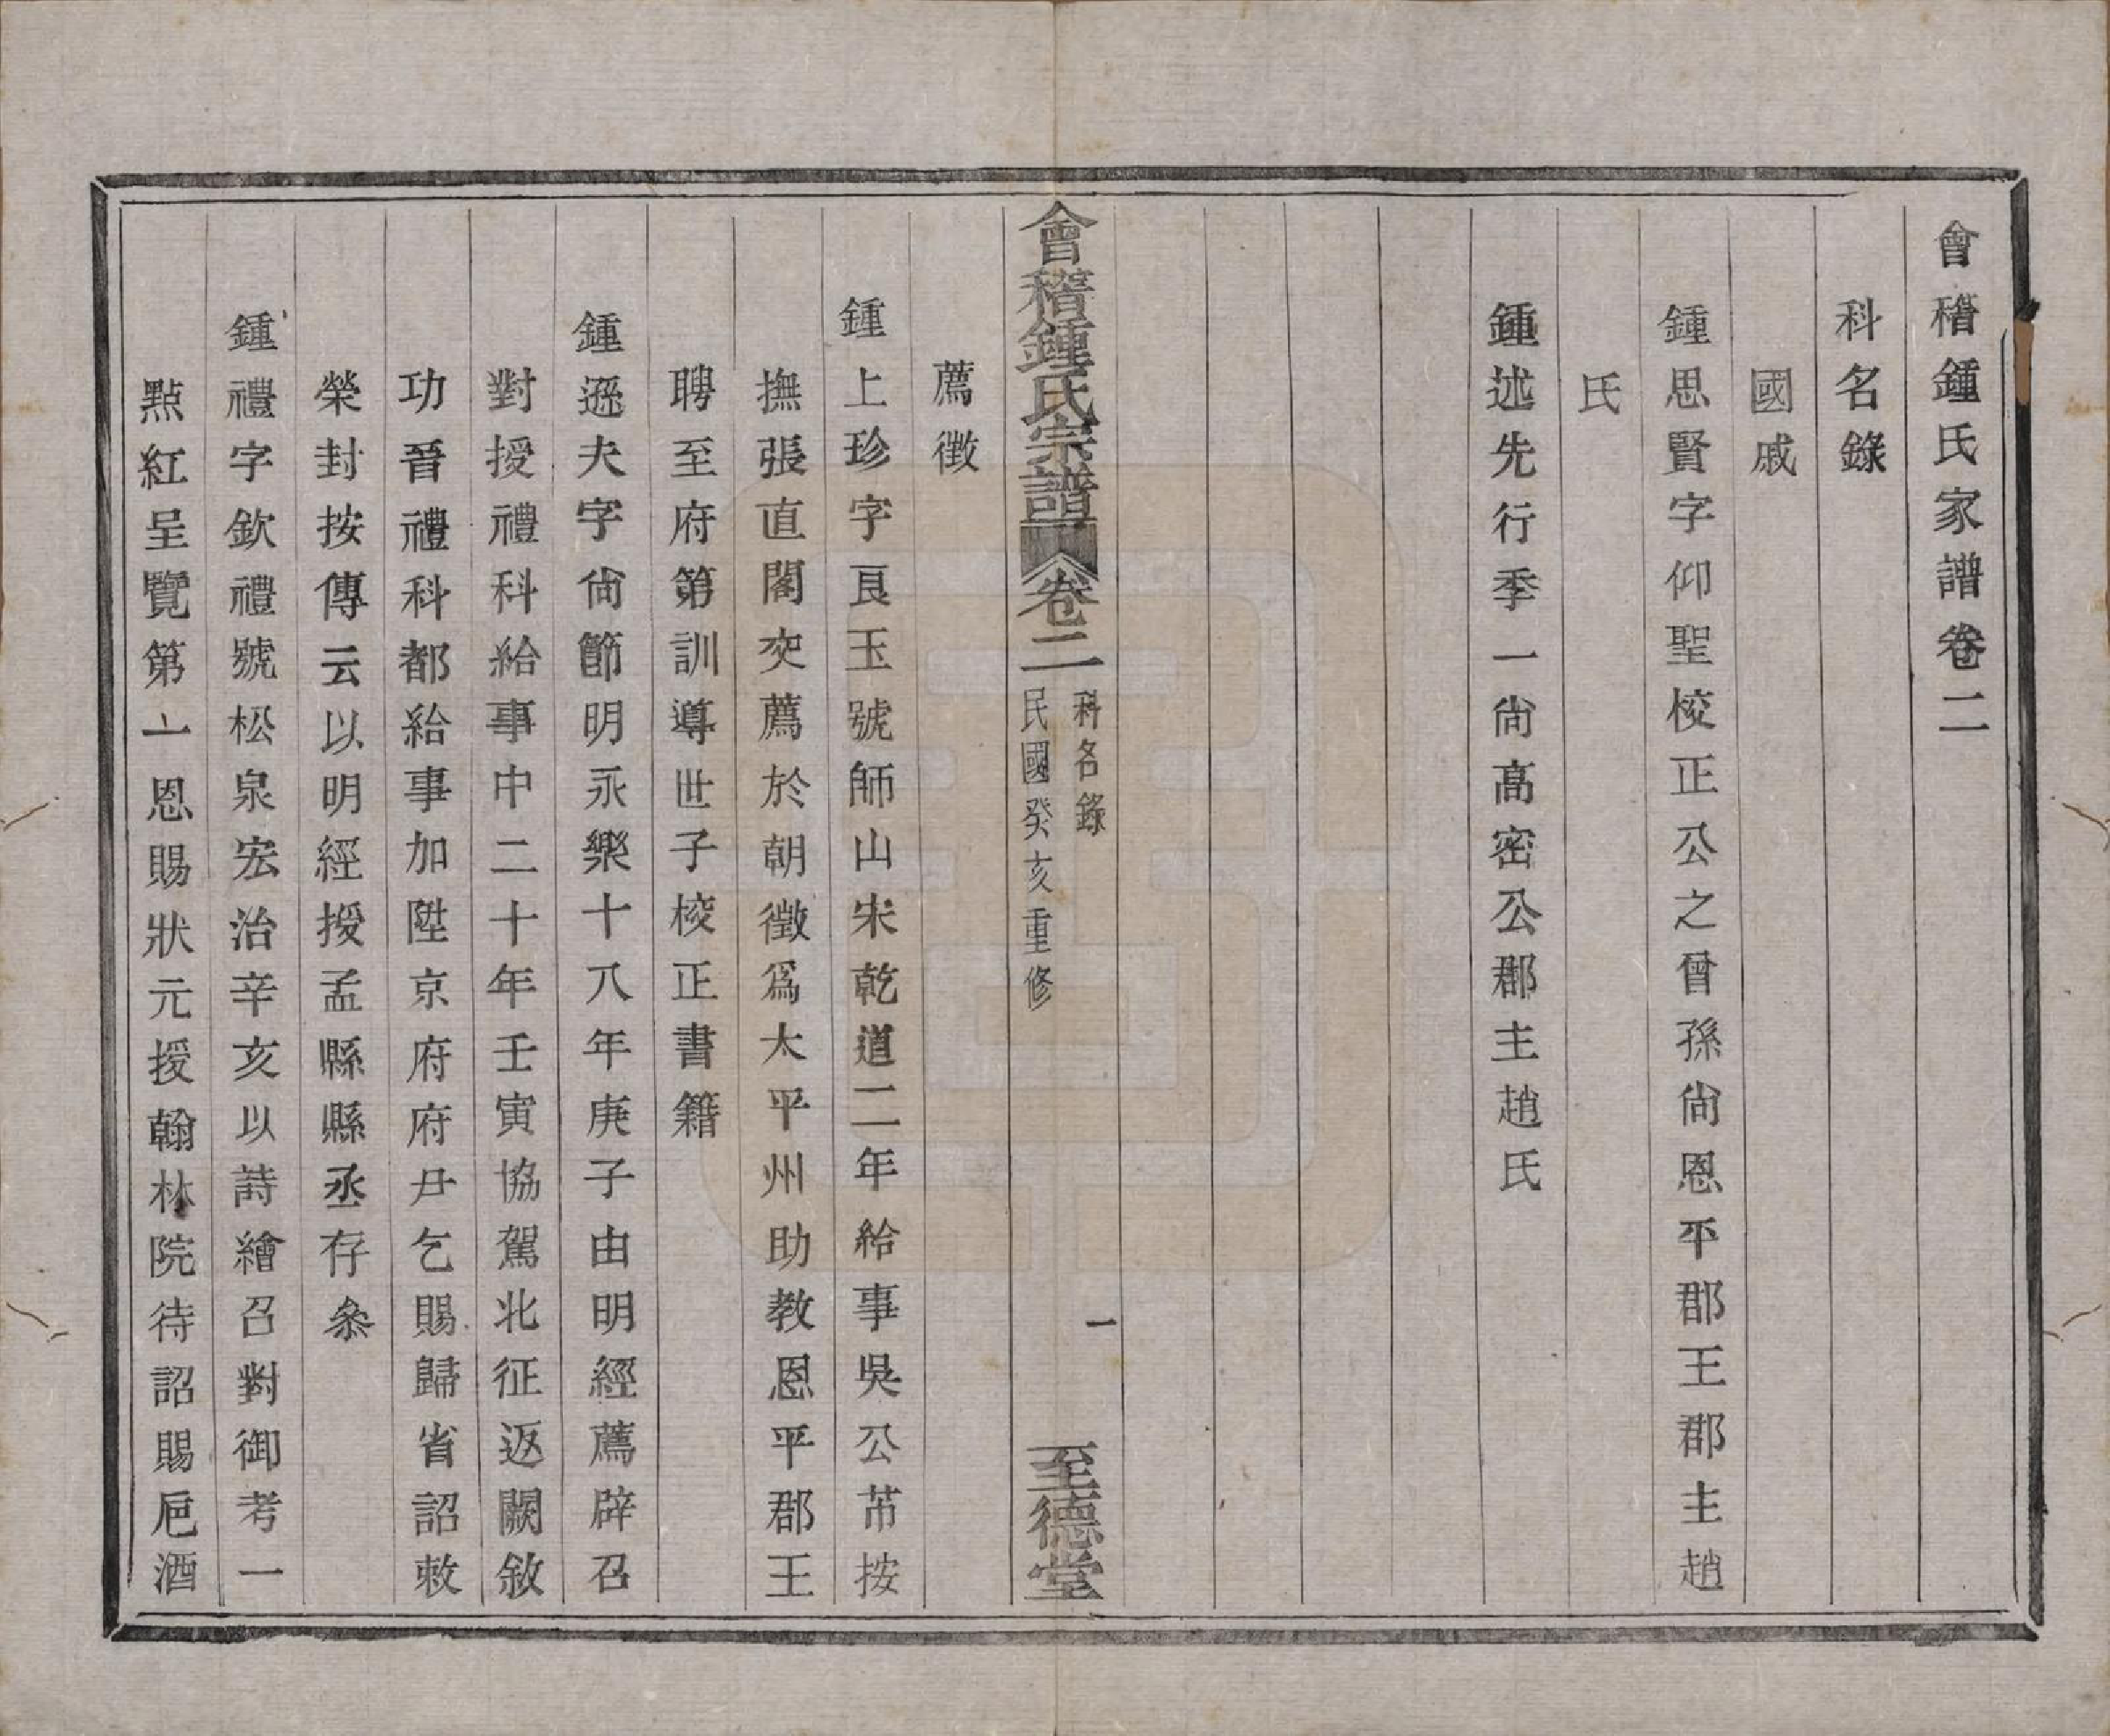 會稽鍾氏家譜卷二
科名錄
國戚
鍾思賢字仰聖校正公之曾孫尙恩平郡王郡主趙
氏
鍾述先行季一尙高密公郡主趙氏
會稽鍾氏宗譜
卷二
科名錄
民國癸亥重修
一
至德堂
薦徵
鍾上珍字艮玉號師山宋乾道二年給事吳公芾按
撫張直閣交薦於朝徵爲太平州助教恩平郡王
聘至府第訓導世子校正書籍
鍾遜夫字尙節明永樂十八年庚子由明經薦辟召
對授禮科給事中二十年壬寅協駕北征返闕敘
功晉禮科都給事加陞京府府尹乞賜歸省詔敕
榮封按傳云以明經授孟縣縣丞存叅
鍾禮字欽禮號松泉宏治辛亥以詩繪召對御考一
點紅呈覽第一恩賜狀元授翰林院待詔賜巵酒